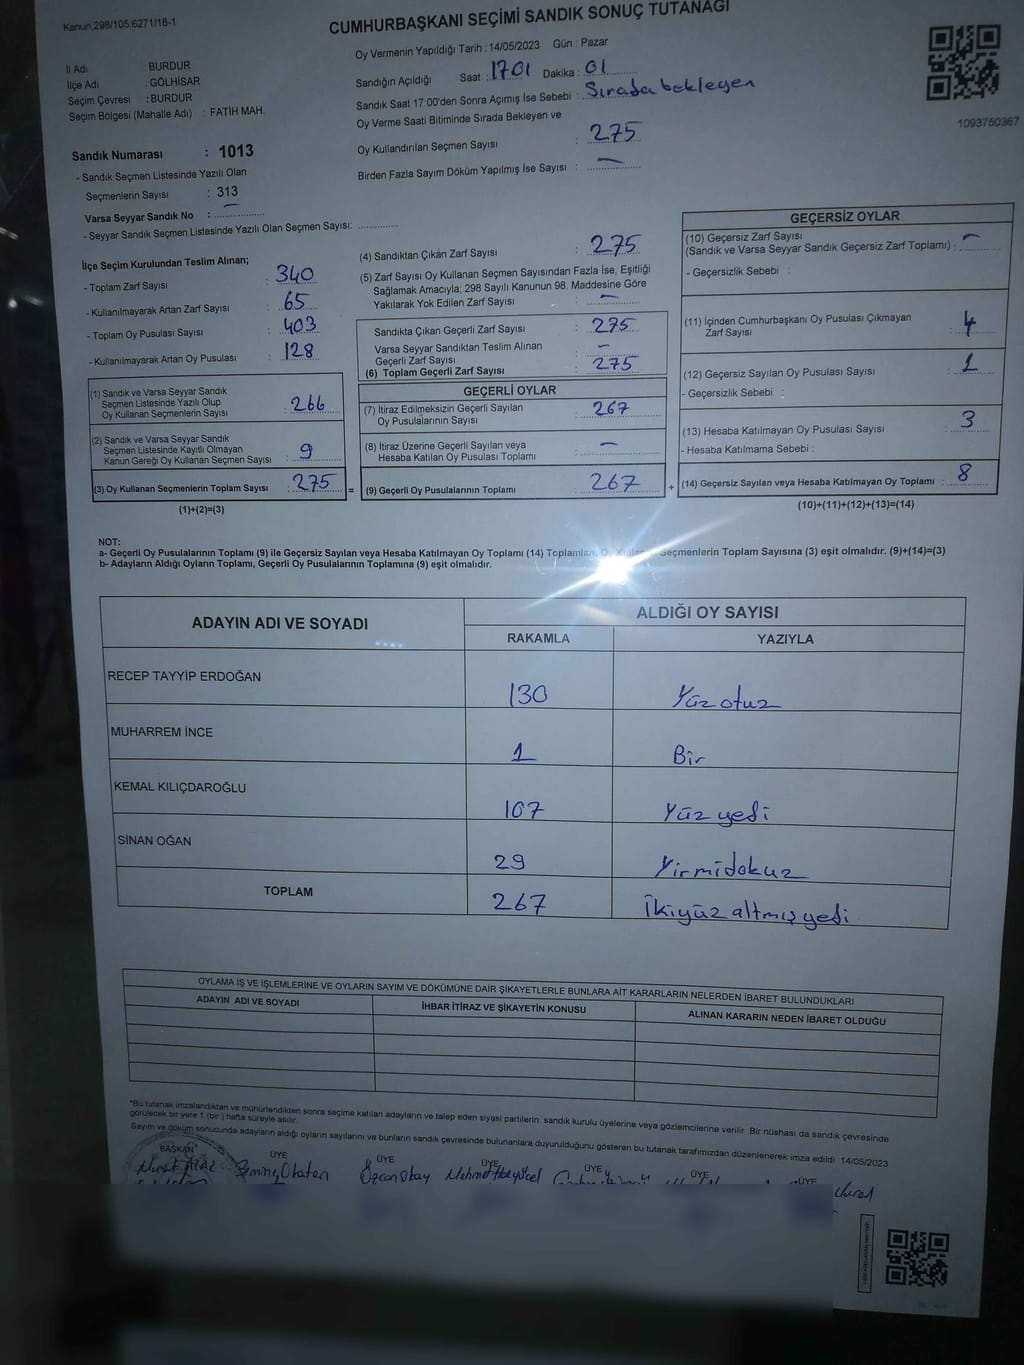 Kanun,298/105,6271/18-1
CUMHURBAŞKANI SEÇİMİ SANDIK SONUÇ TUTANAĞI
Oy Vermenin Yapıldığı Tarih : 14/05/2023 Gün : Pazar
İl Adı BURDUR
İlçe Adı : GÖLHİSAR
Seçim Çevresi : BURDUR
Seçim Bölgesi (Mahalle Adı) : FATİH MAH.
Sandığın Açıldığı Saat : 1701 Dakika : 01
Sandık Saat 17:00'den Sonra Açımış İse Sebebi : Sırada bekleyen
Oy Verme Saati Bitiminde Sırada Bekleyen ve
Oy Kullandırılan Seçmen Sayısı : 275
Birden Fazla Sayım Döküm Yapılmış İse Sayısı : —
1093750367
Sandık Numarası : 1013
- Sandık Seçmen Listesinde Yazılı Olan
Seçmenlerin Sayısı : 313
Varsa Seyyar Sandık No : —
- Seyyar Sandık Seçmen Listesinde Yazılı Olan Seçmen Sayısı:
İlçe Seçim Kurulundan Teslim Alınan;
- Toplam Zarf Sayısı : 340
- Kullanılmayarak Artan Zarf Sayısı : 65
- Toplam Oy Pusulası Sayısı : 403
- Kullanılmayarak Artan Oy Pusulası : 128
(1) Sandık ve Varsa Seyyar Sandık
Seçmen Listesinde Yazılı Olup
Oy Kullanan Seçmenlerin Sayısı : 266
(2) Sandık ve Varsa Seyyar Sandık
Seçmen Listesinde Kayıtlı Olmayan
Kanun Gereği Oy Kullanan Seçmen Sayısı : 9
(3) Oy Kullanan Seçmenlerin Toplam Sayısı : 275 =
(1)+(2)=(3)
(4) Sandıktan Çıkan Zarf Sayısı : 275
(5) Zarf Sayısı Oy Kullanan Seçmen Sayısından Fazla İse, Eşitliği
Sağlamak Amacıyla; 298 Sayılı Kanunun 98. Maddesine Göre
Yakılarak Yok Edilen Zarf Sayısı : —
Sandıkta Çıkan Geçerli Zarf Sayısı : 275
Varsa Seyyar Sandıktan Teslim Alınan
Geçerli Zarf Sayısı : —
(6) Toplam Geçerli Zarf Sayısı : 275
GEÇERLİ OYLAR
(7) İtiraz Edilmeksizin Geçerli Sayılan
Oy Pusulalarının Sayısı : 267
(8) İtiraz Üzerine Geçerli Sayılan veya
Hesaba Katılan Oy Pusulası Toplamı : —
(9) Geçerli Oy Pusulalarının Toplamı : 267 +
GEÇERSİZ OYLAR
(10) Geçersiz Zarf Sayısı
(Sandık ve Varsa Seyyar Sandık Geçersiz Zarf Toplamı) : —
- Geçersizlik Sebebi :
(11) İçinden Cumhurbaşkanı Oy Pusulası Çıkmayan
Zarf Sayısı : 4
(12) Geçersiz Sayılan Oy Pusulası Sayısı : 1
- Geçersizlik Sebebi :
(13) Hesaba Katılmayan Oy Pusulası Sayısı : 3
- Hesaba Katılmama Sebebi :
(14) Geçersiz Sayılan veya Hesaba Katılmayan Oy Toplamı : 8
(10)+(11)+(12)+(13)=(14)
NOT:
a- Geçerli Oy Pusulalarının Toplamı (9) ile Geçersiz Sayılan veya Hesaba Katılmayan Oy Toplamı (14) Toplamları, Seçmenlerin Toplam Sayısına (3) eşit olmalıdır. (9)+(14)=(3)
b- Adayların Aldığı Oyların Toplamı, Geçerli Oy Pusulalarının Toplamına (9) eşit olmalıdır.
ADAYIN ADI VE SOYADI
ALDIĞI OY SAYISI
RAKAMLA YAZIYLA
RECEP TAYYİP ERDOĞAN 130 Yüz otuz
MUHARREM İNCE 1 Bir
KEMAL KILIÇDAROĞLU 107 Yüz yedi
SİNAN OĞAN 29 Yirmidokuz
TOPLAM 267 İkiyüz altmış yedi
OYLAMA İŞ VE İŞLEMLERİNE VE OYLARIN SAYIM VE DÖKÜMÜNE DAİR ŞİKAYETLERLE BUNLARA AİT KARARLARIN NELERDEN İBARET BULUNDUKLARI
ADAYIN ADI VE SOYADI İHBAR İTİRAZ VE ŞİKAYETİN KONUSU ALINAN KARARIN NEDEN İBARET OLDUĞU
*Bu tutanak imzalandıktan ve mühürlendikten sonra seçime katılan adayların ve talep eden siyasi partilerin sandık kurulu üyelerine veya gözlemcilerine verilir. Bir nüshası da sandık çevresinde
görülecek bir yere 1 (bir ) hafta süreyle asılır.
Sayım ve döküm sonucunda adayların aldığı oyların sayılarını ve bunların sandık çevresinde bulunanlara duyurulduğunu gösteren bu tutanak tarafımızdan düzenlenerek imza edildi 14/05/2023
BAŞKAN ÜYE ÜYE ÜYE ÜYE ÜYE ÜYE
Murat Özcan Okay